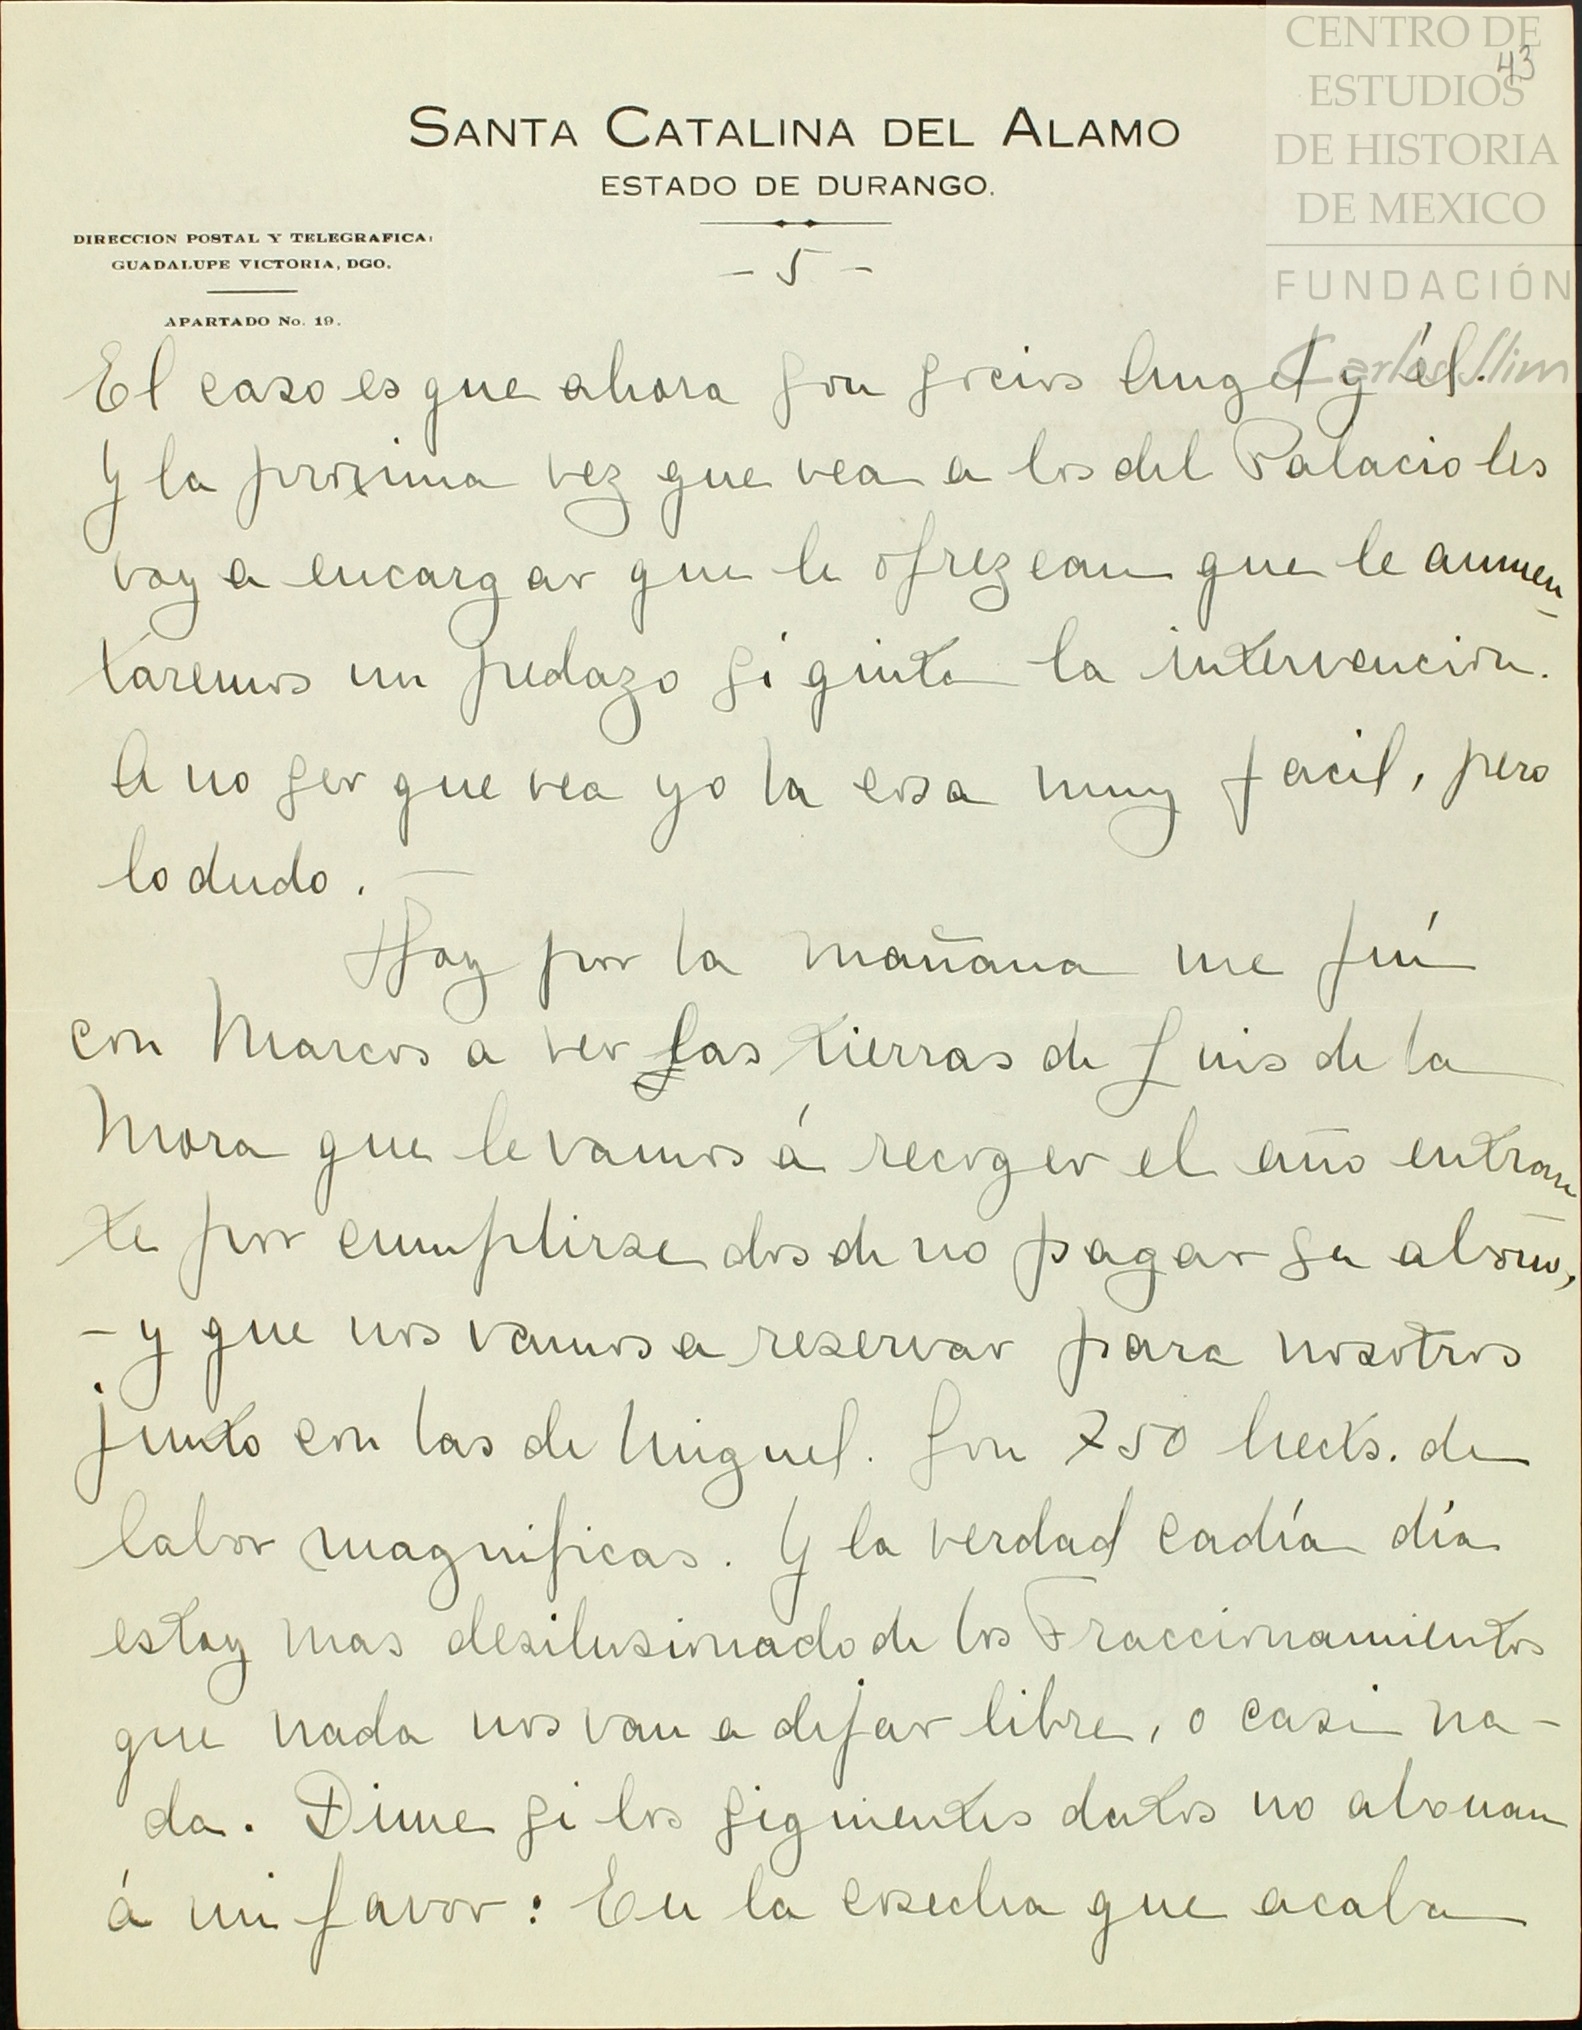 CENTRO DE
ESTUDIOS
DE HISTORIA
DE MEXICO
FUNDACIÓN
Carlos Slim
43
SANTA CATALINA DEL ALAMO
ESTADO DE DURANGO.
DIRECCION POSTAL Y TELEGRAFICA:
GUADALUPE VICTORIA, DGO.
APARTADO No. 19.
- 5 -
El caso es que ahora son socios Angel y él.
Y la proxima vez que vea a los del Palacio les
voy a encargar que le ofrezcan que le aumen-
taremos un pedazo si quita la intervencion.
A no ser que vea yo la cosa muy facil, pero
lo dudo. —
Hoy por la mañana me fuí
con Marcos a ver las tierras de Luis de la
Mora que le vamos á recoger el año entran-
te por cumplirse dos de no pagar su abono,
- y que nos vamos a reservar para nosotros
junto con las de Miguel. Son 750 hects. de
labor magnificas. Y la verdad cadía día
estoy mas desilusionado de los Fraccionamientos
que nada nos van a dejar libre, o casi na-
da. Dime si los siguientes datos no abonan
á mi favor: En la cosecha que acaba